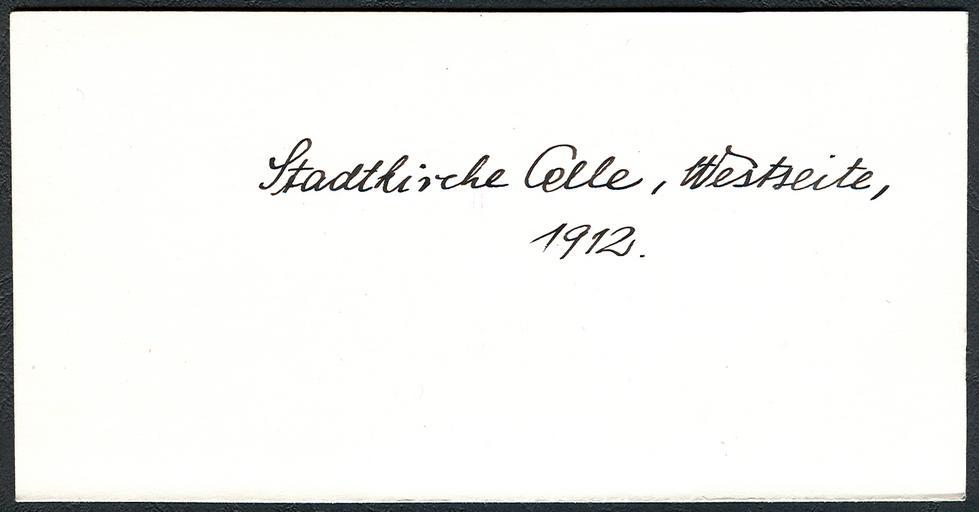 Stadtkirche Celle, Westseite,
1912.